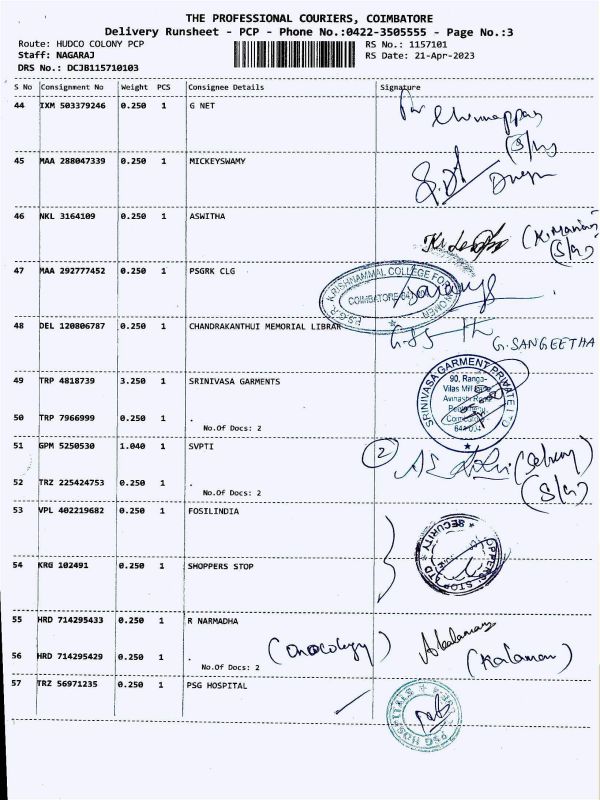 THE PROFESSIONAL COURIERS, COIMBATORE
Delivery Runsheet - PCP - Phone No.:0422-3505555 - Page No.:3
Route: HUDCO COLONY PCP RS No.: 1157101
Staff: NAGARAJ RS Date: 21-Apr-2023
DRS No.: DCJB115710103
S No Consignment No Weight PCS Consignee Details Signature
44 IXM 503379246 0.250 1 G NET
(S/n)
45 MAA 288047339 0.250 1 MICKEYSWAMY
46 NKL 3164109 0.250 1 ASWITHA
(S/n)
47 MAA 292777452 0.250 1 PSGRK CLG
P.S.G.R. KRISHNAMMAL COLLEGE FOR WOMEN
COIMBATORE
48 DEL 120806787 0.250 1 CHANDRAKANTHUI MEMORIAL LIBRAR
G. SANGEETHA
49 TRP 4818739 3.250 1 SRINIVASA GARMENTS
SRINIVASA GARMENT PRIVATE LTD
90, Ranga-
Vilas Mill
Avinash Road
50 TRP 7966999 0.250 1 .
No.Of Docs: 2
51 GPM 5250530 1.040 1 SVPTI
2
52 TRZ 225424753 0.250 1 .
No.Of Docs: 2
(S/n)
53 VPL 402219682 0.250 1 FOSILINDIA
SECURITY
54 KRG 102491 0.250 1 SHOPPERS STOP
55 HRD 714295433 0.250 1 R NARMADHA
(Oncology)
(Kalamani)
56 HRD 714295429 0.250 1 .
No.Of Docs: 2
57 TRZ 56971235 0.250 1 PSG HOSPITAL
PSG HOSPITALS